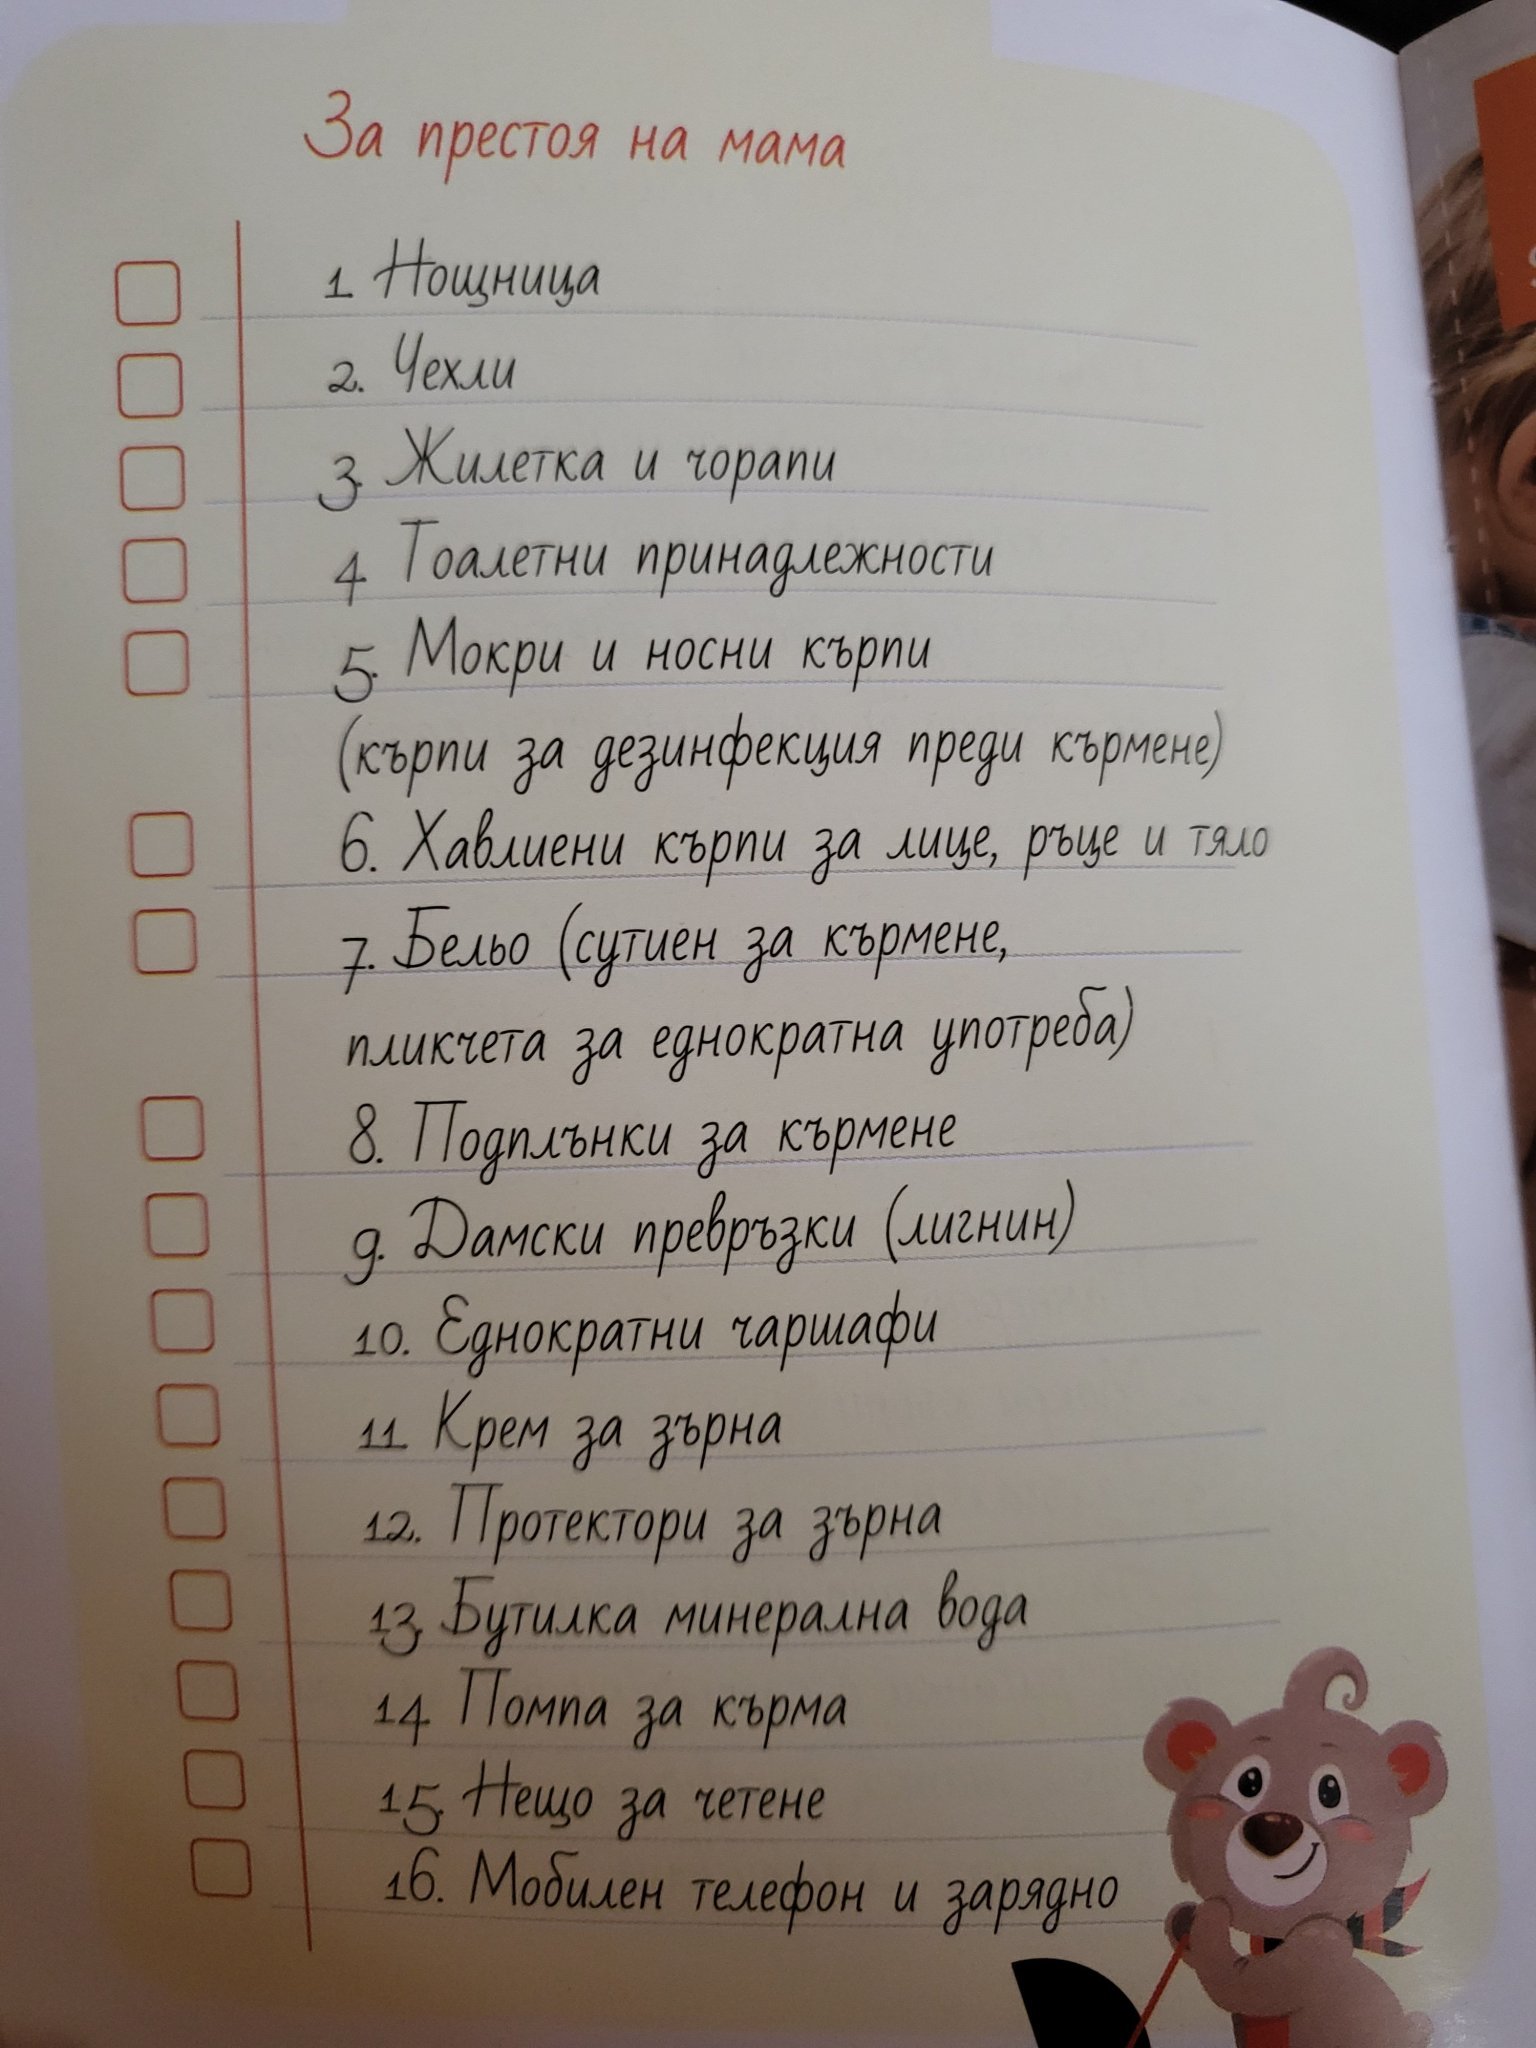 За престоя на мама
1. Нощница
2. Чехли
3. Жилетка и чорапи
4. Тоалетни принадлежности
5. Мокри и носни кърпи
(кърпи за дезинфекция преди кърмене)
6. Хавлиени кърпи за лице, ръце и тяло
7. Бельо (сутиен за кърмене,
пликчета за еднократна употреба)
8. Подплънки за кърмене
9. Дамски превръзки (лигнин)
10. Еднократни чаршафи
11. Крем за зърна
12. Протектори за зърна
13. Бутилка минерална вода
14. Помпа за кърма
15. Нещо за четене
16. Мобилен телефон и зарядно